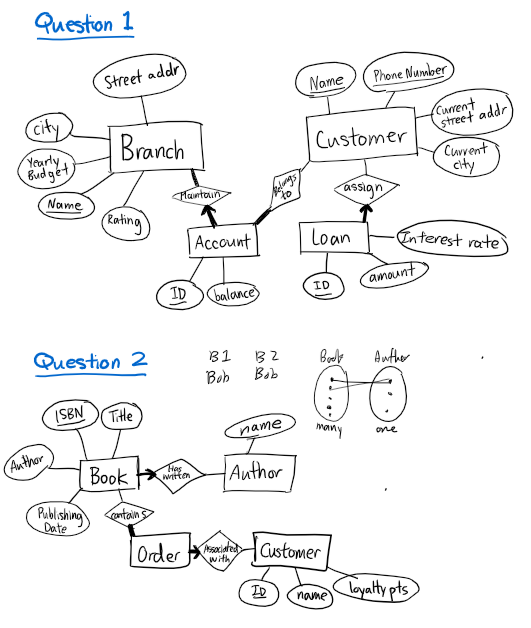 Question 1
Street addr
City
Yearly
Budget
Name
Rating
Branch
Maintain
Account
ID
balance
Belongs
to
Name
Phone Number
Current
street addr
Current
city
Customer
assign
Loan
ID
amount
Interest rate
Question 2
B1 B2
Bob Bob
Book Author
many one
ISBN
Title
Author
Publishing
Date
Book
Has
written
name
Author
contains
Order
Associated
with
Customer
ID
name
loyalty pts